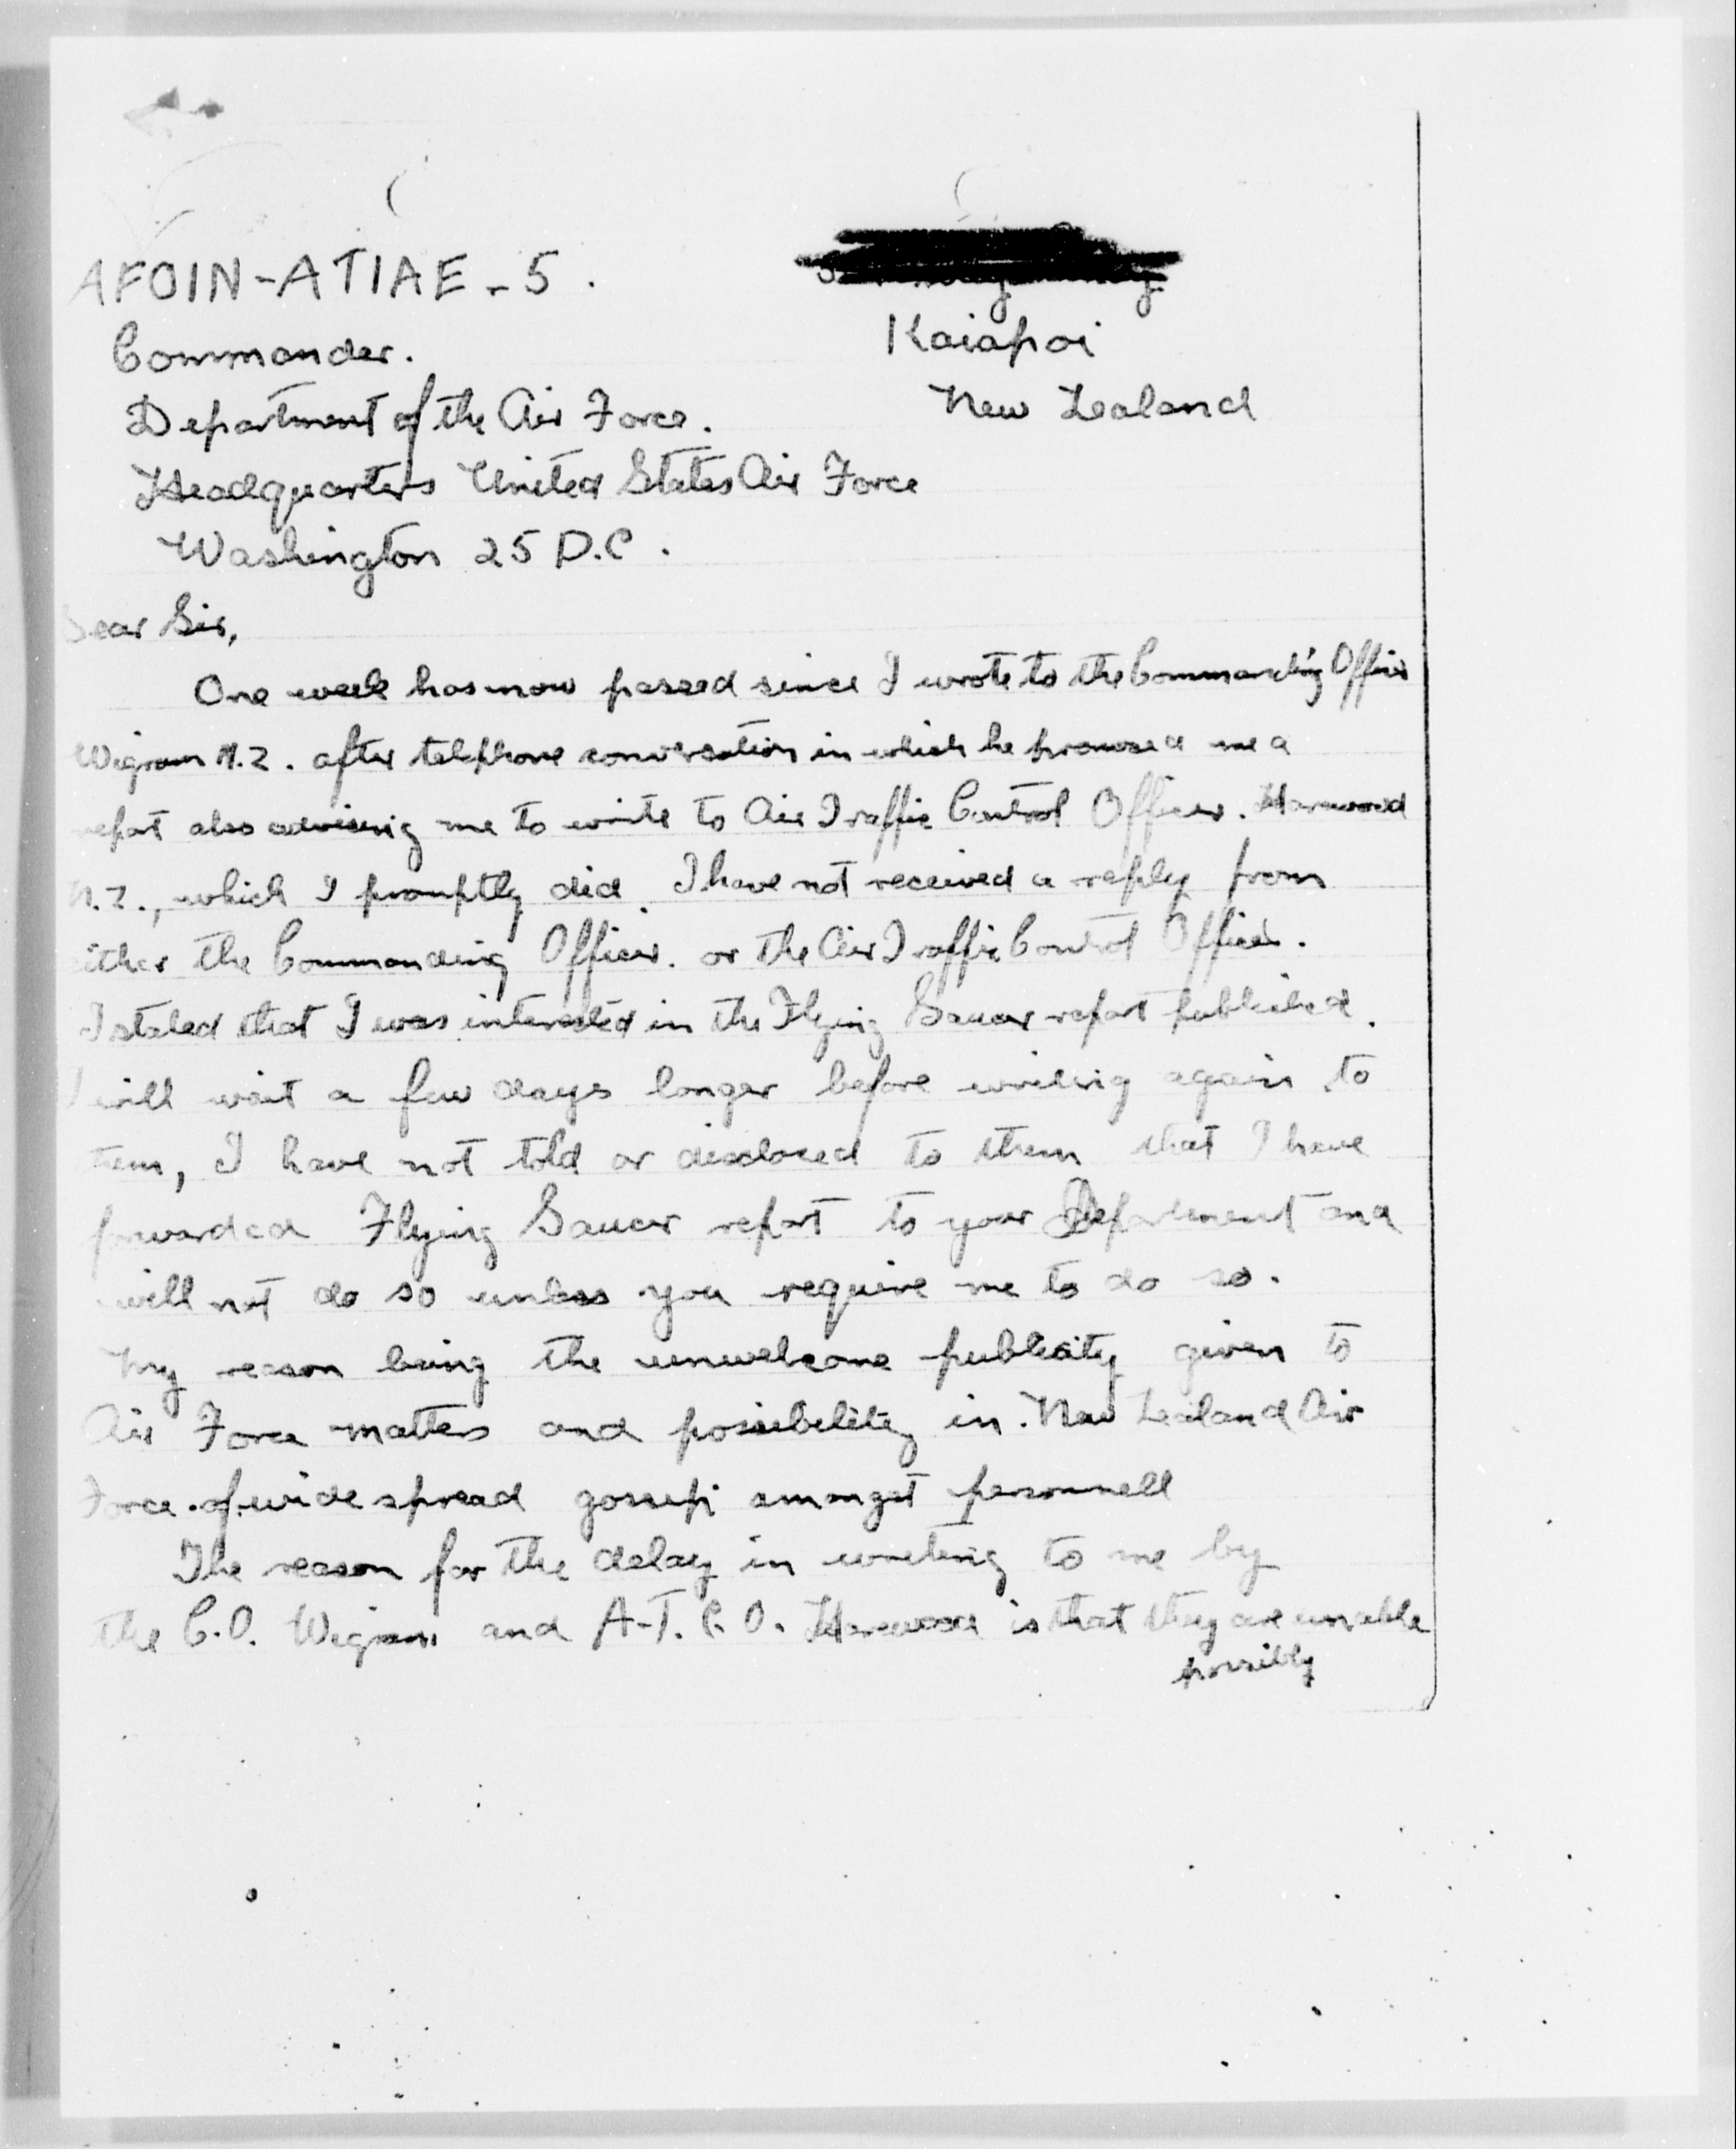 AFOIN-ATIAE-5.
Kaiapoi
New Zealand
Commander.
Department of the Air Force.
Headquarters United States Air Force
Washington 25 D.C.
Dear Sir,
One week has now passed since I wrote to the Commanding Officer
Wigram N.Z. after telephone conversation in which he promised me a
report also advising me to write to Air Traffic Control Officer. Harewood
N.Z., which I promptly did. I have not received a reply from
either the Commanding Officer. or the Air Traffic Control Officer.
I stated that I was interested in the Flying Saucer report published.
I will wait a few days longer before writing again to
them, I have not told or disclosed to them that I have
forwarded Flying Saucer report to your Department and
will not do so unless you require me to do so.
My reason being the unwelcome publicity given to
Air Force matters and possibility in New Zealand Air
Force of wide spread gossip amongst personnell
The reason for the delay in writing to me by
the C.O. Wigram and A.T.C.O. Harewood is that they are unable
possibly